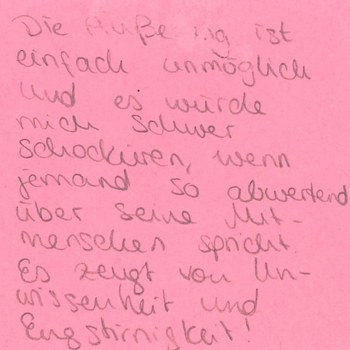 Die Äußerung ist
einfach unmöglich
und es würde
mich schwer
schockieren, wenn
jemand so abwertend
über seine Mit-
menschen spricht.
Es zeugt von Un-
wissenheit und
Engstirnigkeit!